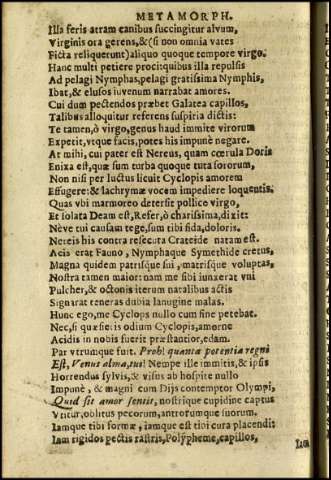 METAMORPH.
Illa feris atram canibus succingitur alvum,
Virginis ora gerens, & (si non omnia vates
Ficta reliquerunt) aliquo quoque tempore virgo.
Hanc multi petiere procique quibus illa repulsis
Ad pelagi Nymphas, pelagi gratissima Nymphis,
Ibat, & elusos iuvenum narrabat amores.
Cui dum pectendos præbet Galatea capillos,
Talibus alloquitur referens suspiria dictis:
Te tamen, ô virgo, genus haud immite virorum
Expetit, vtque facis, potes his impunè negare.
At mihi, cui pater est Nereus, quam cœrula Doris
Enixa est, quæ sum turba quoque tuta sororum,
Non nisi per luctus licuit Cyclopis amorem
Effugere: & lachrymæ vocem impediere loquentis.
Quas vbi marmoreo detersit pollice virgo,
Et solata Deam est, Refer, ô charissima, dixit:
Nève tui causam tege, sum tibi fida, doloris.
Nereis his contra resecuta Crateide natam est.
Acis erat Fauno, Nymphaque Symethide cretus,
Magna quidem patrisque sui, matrisque voluptas,
Nostra tamen maior: nam me sibi iunxerat vni
Pulcher, & octonis iterum natalibus actis
Signarat teneras dubia lanugine malas.
Hunc ego, me Cyclops nullo cum fine petebat.
Nec, si quæsieris odium Cyclopis, amorne
Acidis in nobis fuerit præstantior, edam.
Par vtrumque fuit. Proh! quanta potentia regni
Est, Venus alma, tui! Nempe ille immitis, & ipsis
Horrendus sylvis, & visus ab hospite nullo
Impunè, & magni cum Dijs contemptor Olympi,
Quid sit amor sentit, nostrique cupidine captus
Vritur, oblitus pecorum, antrorumque suorum.
Iamque tibi formæ, iamque est tibi cura placendi:
Iam rigidos pectis rastris, Polypheme, capillos,
Iam